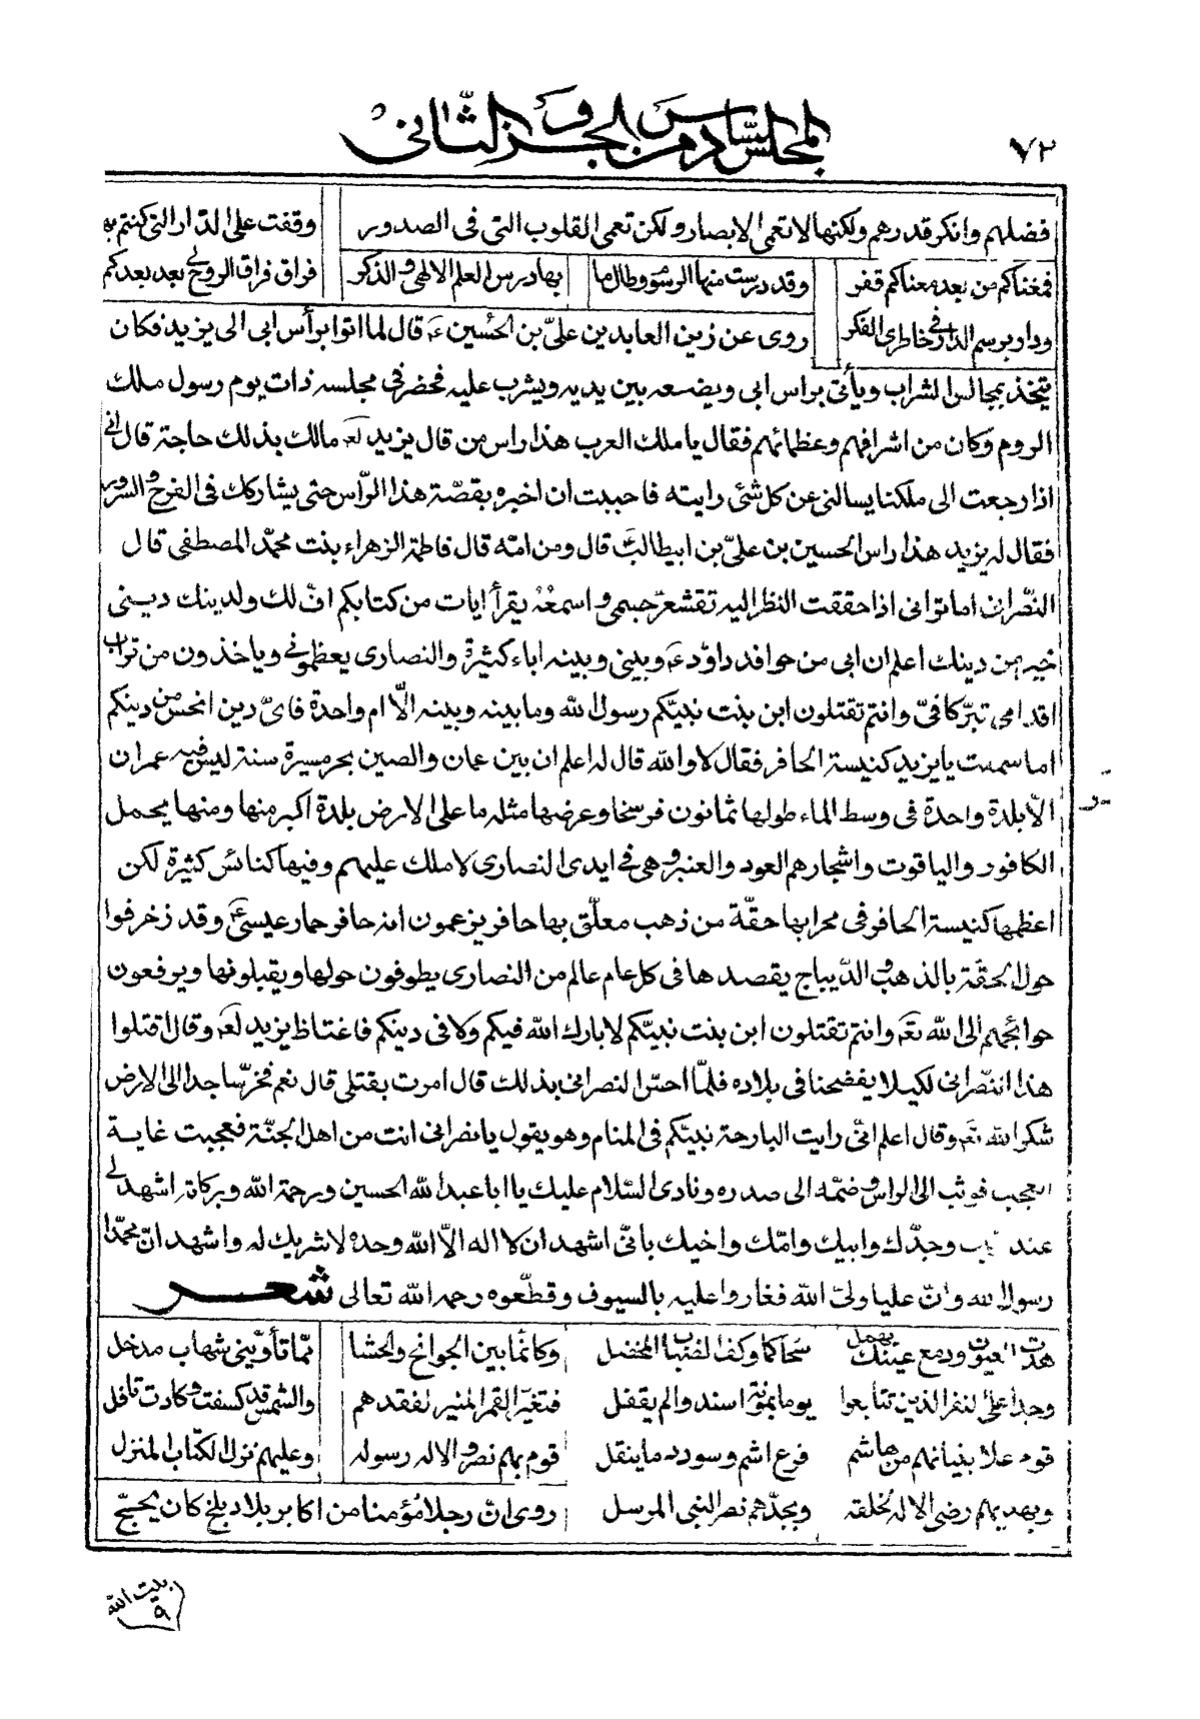 ٧٢
المجلس السادس من الجزو الثاني
فضلهم وانكر قدرهم ولكنها لا تعمى الابصار ولكن تعمى القلوب التى فى الصدور
وقفت على الدار التى كنتم بها
فمغناكم من بعد معناكم قفر
وقد درست منها الرسوم وطال ما
بها درس العلم الالهى والذكر
فراق فراق الروح لي بعد بعدكم
ودار برسم الدار فى خاطرى الفكر
روى عن زين العابدين علىّ بن الحسين ع قال لما اتوا براس ابى الى يزيد فكان
يتخذ مجالس الشراب ويأتى براس ابى ويضعه بين يديه ويشرب عليه فحضر فى مجلسه ذات يوم رسول ملك
الروم وكان من اشرافهم وعظمائهم فقال يا ملك العرب هذا راس من قال يزيد لعه مالك بذلك حاجة قال انى
اذا رجعت الى ملكنا يسالنى عن كل شئى رايته فاحببت ان اخبره بقصّة هذا الرّاس حتى يشاركك فى الفرح والسرور
فقال له يزيد هذا راس الحسين بن علىّ بن ابيطالب قال ومن امّه قال فاطمة الزهراء بنت محمّد المصطفى قال
النصرانى اما ترانى اذا حققت النظر اليه تقشعرّ جسمى واسمعه يقرأ ايات من كتابكم افّ لك ولدينك دينى
خير من دينك اعلم ان ابى من حوافد داود ع وبينى وبينه اباء كثيرة والنصارى يعظمونى وياخذون من تراب
اقدامى تبركا فىّ وانتم تقتلون ابن بنت نبيّكم رسول الله وما بينه وبينه الّا ام واحدة فاىّ دين انحس من دينكم
اما سمعت يا يزيد كنيسة الحافر فقال لا والله قال له اعلم ان بين عمان والصين بحر مسيرة سنة ليس فيه عمران
الّا بلدة واحدة فى وسط الماء طولها ثمانون فرسخا وعرضها مثله ما على الارض بلدة اكبر منها ومنها يحمل
الكافور والياقوت واشجارهم العود والعنبر وهى فى ايدى النصارى لا ملك عليهم وفيها كنائس كثيرة لكن
اعظمها كنيسة الحافر فى محرابها حقّة من ذهب معلّق بها حافر يزعمون انه حافر حمار عيسى ع وقد زخرفوا
حول الحقّة بالذهب والدّيباج يقصدها فى كل عام عالم من النصارى يطوفون حولها ويقبلونها ويرفعون
حوائجهم الى الله تع وانتم تقتلون ابن بنت نبيّكم لا بارك الله فيكم ولا فى دينكم فاغتاظ يزيد لعه وقال اقتلوا
هذا النصرانى لكيلا يفضحنا فى بلاده فلمّا احسّ النصرانى بذلك قال امرت بقتلى قال نعم فخرّ ساجدا الى الارض
شكرا لله تع وقال اعلم انّى رايت البارحة نبيّكم فى المنام وهو يقول يا نصرانى انت من اهل الجنّة فعجبت غاية
العجب فوثب الى الراس وضمّه الى صدره ونادى السّلام عليك يا ابا عبد الله الحسين ورحمة الله وبركاته اشهد لى
عند وجدّك وابيك وامّك واخيك بانّى اشهد ان لا اله الّا الله وحده لا شريك له واشهد انّ محمّدا
رسول الله وانّ عليا ولىّ الله فغاروا عليه بالسيوف وقطّعوه رحمه الله تعالى شعر
هدت العيون ودمع عينك يهمل
سحّا كما وكف الضباب المخضل
وكانّما بين الجوانح والحشا
ممّا تأوّبنى شهاب مدخل
وجدا على النفر الذين تتابعوا
يوما بموتة اسندوا لم يقفل
فتغيّر القمر المنير لفقدهم
والشمس قد كسفت وكادت تافل
قوم علا بنيانهم من هاشم
فرع اشم وسودد ما ينقل
قوم بهم نصر الاله رسوله
وعليهم نزل الكتاب المنزل
وبهديهم رضى الاله لخلقه
وبجدّهم نصر النبى المرسل
روى انّ رجلا مؤمنا من اكابر بلاد بلخ كان يحجّ
بيت الله